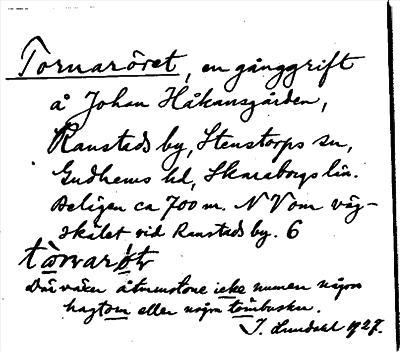 Tornaröret, en gånggrift
å Johan Håkansgården,
Ranstads by, Stenstorps sn,
Gudhems hd, Skaraborgs län.
Belägen ca 700 m. NV om väg-
skälet vid Ranstads by. 6
Där växer åtminstone icke numera någon
hagtorn eller någon törnbuske.
J. Lundahl 1927.